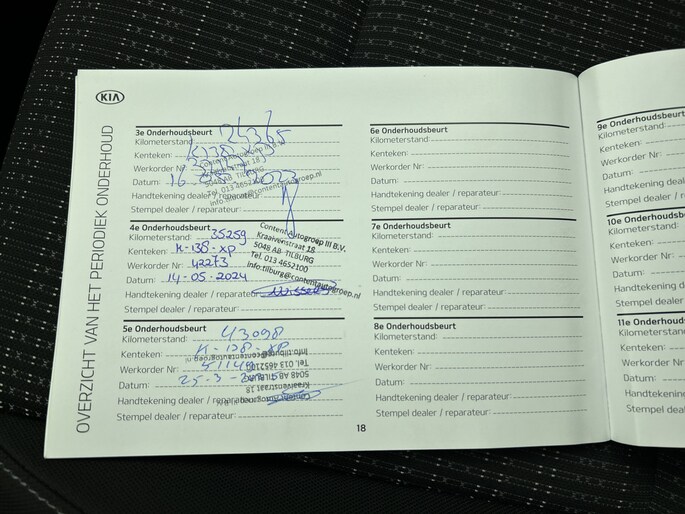 KIA
OVERZICHT VAN HET PERIODIEK ONDERHOUD
3e Onderhoudsbeurt
Kilometerstand: 24365
Kenteken:
Werkorder Nr:
Datum: 16
Handtekening dealer / reparateur:
Stempel dealer / reparateur:
Tel. 013 4652100
4e Onderhoudsbeurt
Kilometerstand: 35259
Kenteken: K-138-XP
Werkorder Nr: 42273
Datum: 14-05-2024
Handtekening dealer / reparateur
Stempel dealer / reparateur:
Content Autogroep III B.V.
Kraaivenstraat 18
5048 AB TILBURG
Tel. 013 4652100
info.tilburg@contentautogroep.nl
5e Onderhoudsbeurt
Kilometerstand: 43098
Kenteken: K-138-XP
Werkorder Nr:
Datum: 25-3-
Handtekening dealer / reparateur
Stempel dealer / reparateur:
Kraaivenstraat 18
5048 AB TILBURG
Tel. 013 4652100
6e Onderhoudsbeurt
Kilometerstand:
Kenteken:
Werkorder Nr:
Datum:
Handtekening dealer / reparateur:
Stempel dealer / reparateur:
7e Onderhoudsbeurt
Kilometerstand:
Kenteken:
Werkorder Nr:
Datum:
Handtekening dealer / reparateur:
Stempel dealer / reparateur:
8e Onderhoudsbeurt
Kilometerstand:
Kenteken:
Werkorder Nr:
Datum:
Handtekening dealer / reparateur:
Stempel dealer / reparateur:
18
9e Onderhoudsbeurt
Kilometerstand:
Kenteken:
Werkorder Nr:
Datum:
Handtekening
Stempel dealer
10e Onderhoudsbeurt
Kilometerstand
Kenteken:
Werkorder Nr
Datum:
Handtekening
Stempel deale
11e Onderhoud
Kilometerstan
Kenteken:
Werkorder N
Datum:
Handtekenin
Stempel dea